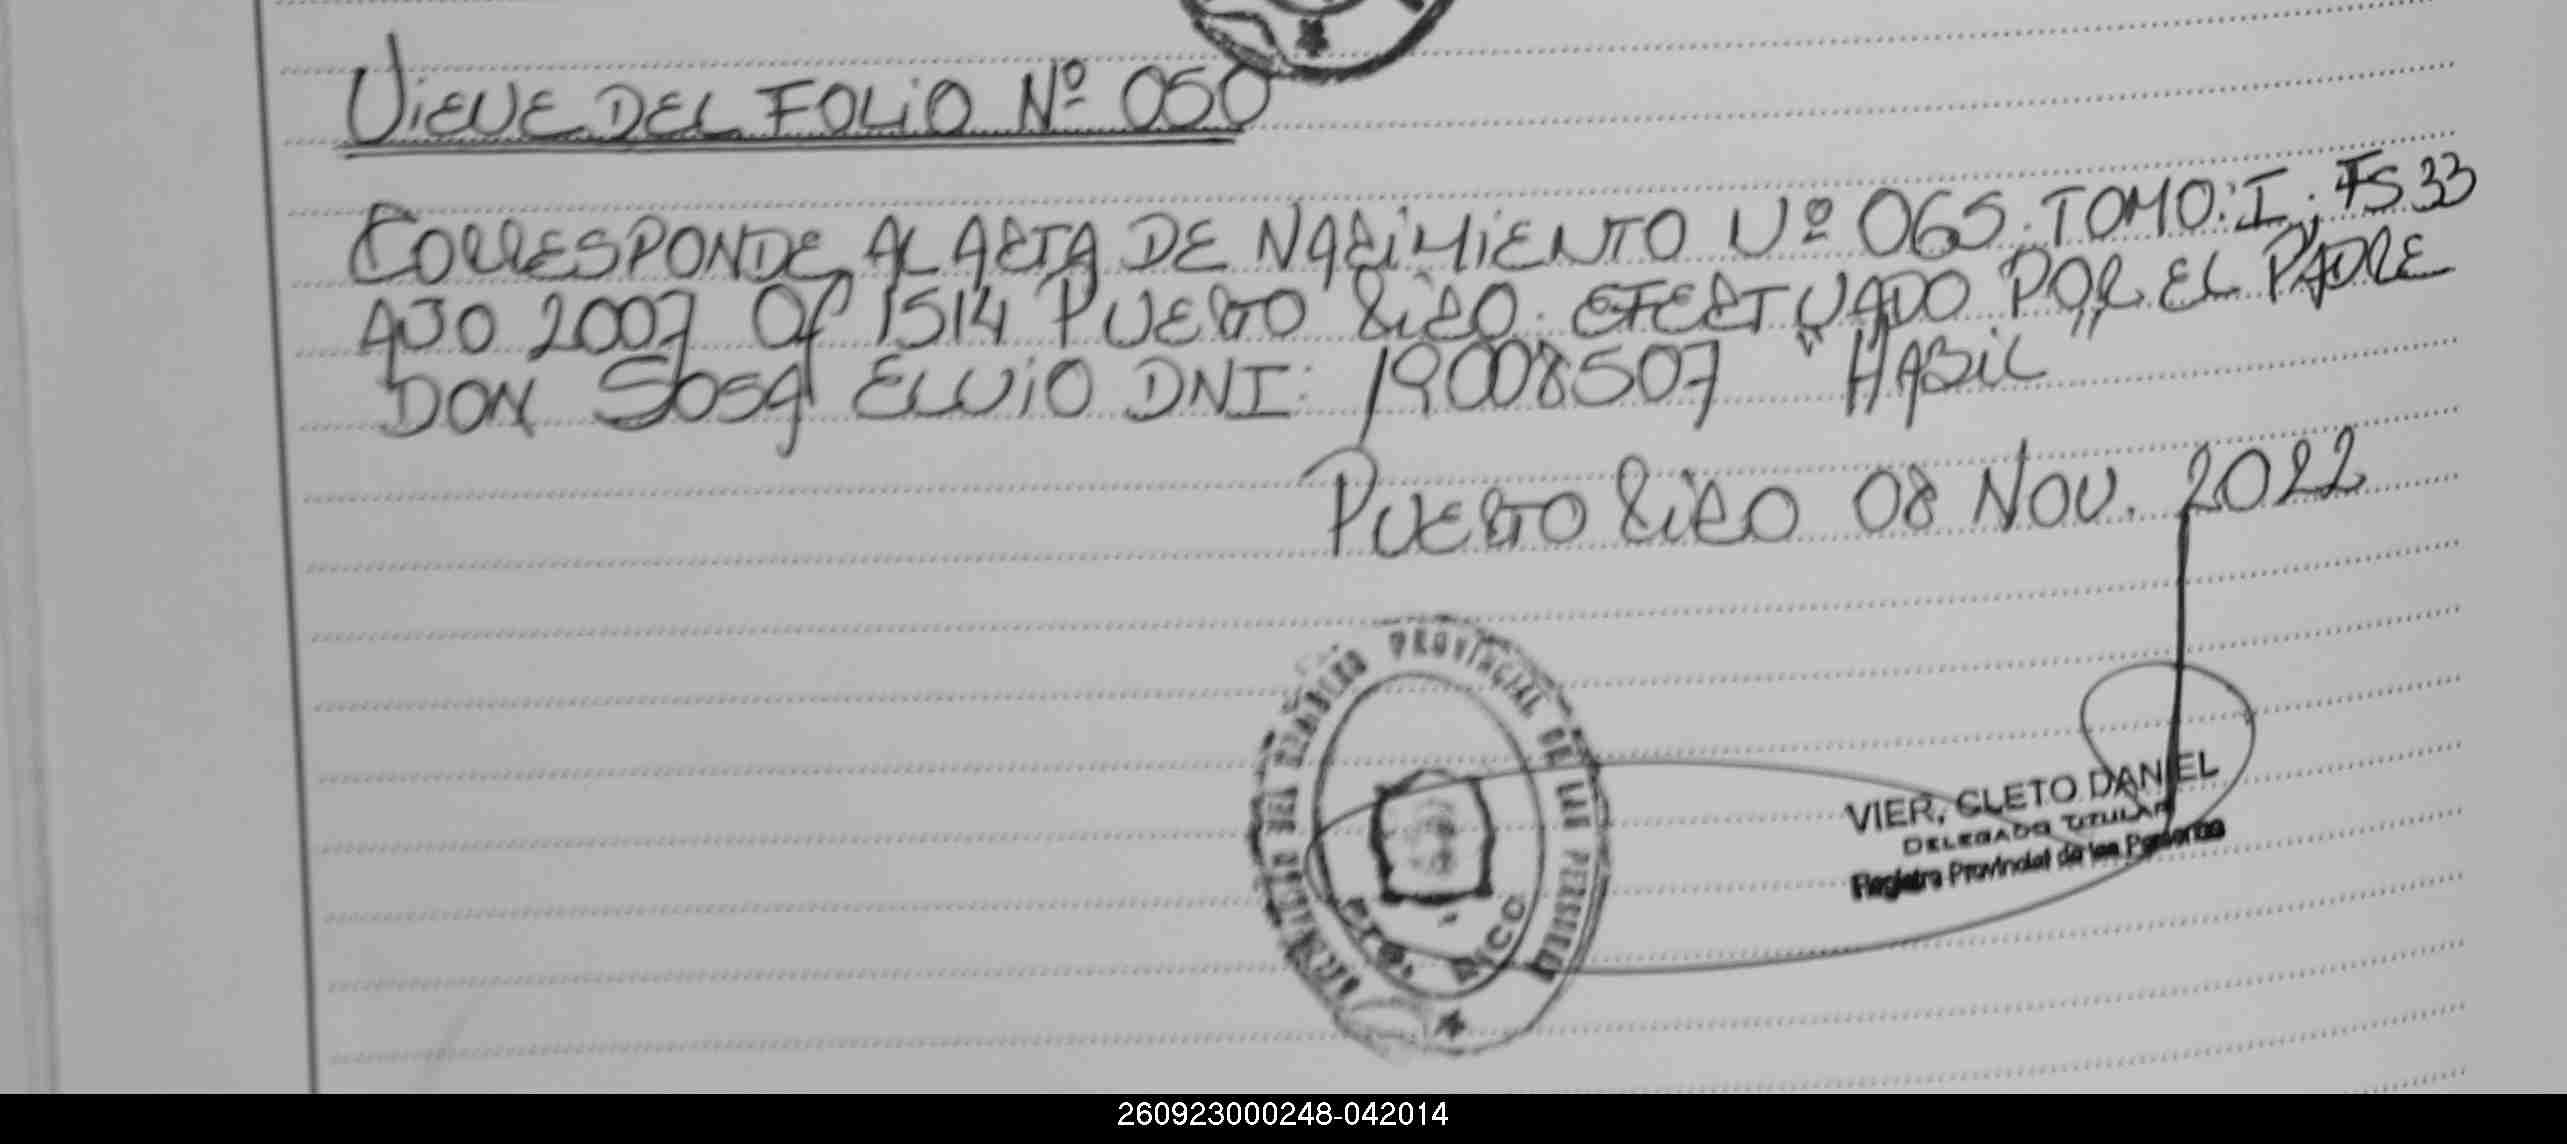 VIENE DEL FOLIO Nº 050
CORRESPONDE AL ACTA DE NACIMIENTO Nº 065. TOMO: I; FS 33
AÑO 2007 Of 1514 PUERTO RICO. EFECTUADO POR EL PADRE
DON SOSA ELVIO DNI: 19008507 "HABIL"
PUERTO RICO 08 NOV. 2022
PROVINCIAL DE LAS PERSONAS
PTO. RICO
VIER, CLETO DANIEL
DELEGADO TITULAR
Registro Provincial de las Personas
260923000248-042014